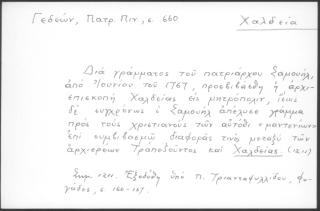 Γεδεών, Πατρ. Πιν., σ. 660
Χαλδεία
Διὰ γράμματος τοῦ πατριάρχου Σαμουήλ,
ἀπὸ Ἰουνίου τοῦ 1767, προεβιβάσθη ἡ ἀρχι-
επισκοπὴ Χαλδείας εἰς μητρόπολιν, ἴσως
δὲ συγχρόνως ὁ Σαμουὴλ ἀπέλυσε γράμμα
πρὸς τοὺς χριστιανοὺς τῶν αὐτόθι «μαντενίων»
ἐπὶ συμβιβασμῷ διαφορᾶς τινὸς μεταξὺ τῶν
ἀρχιερέων Τραπεζοῦντος καὶ Χαλδείας (1211)
Σημ. 1211. Ἐξεδόθη ὑπὸ Π. Τριανταφυλλίδου, Φυ-
γάδος, σ. 166-167.